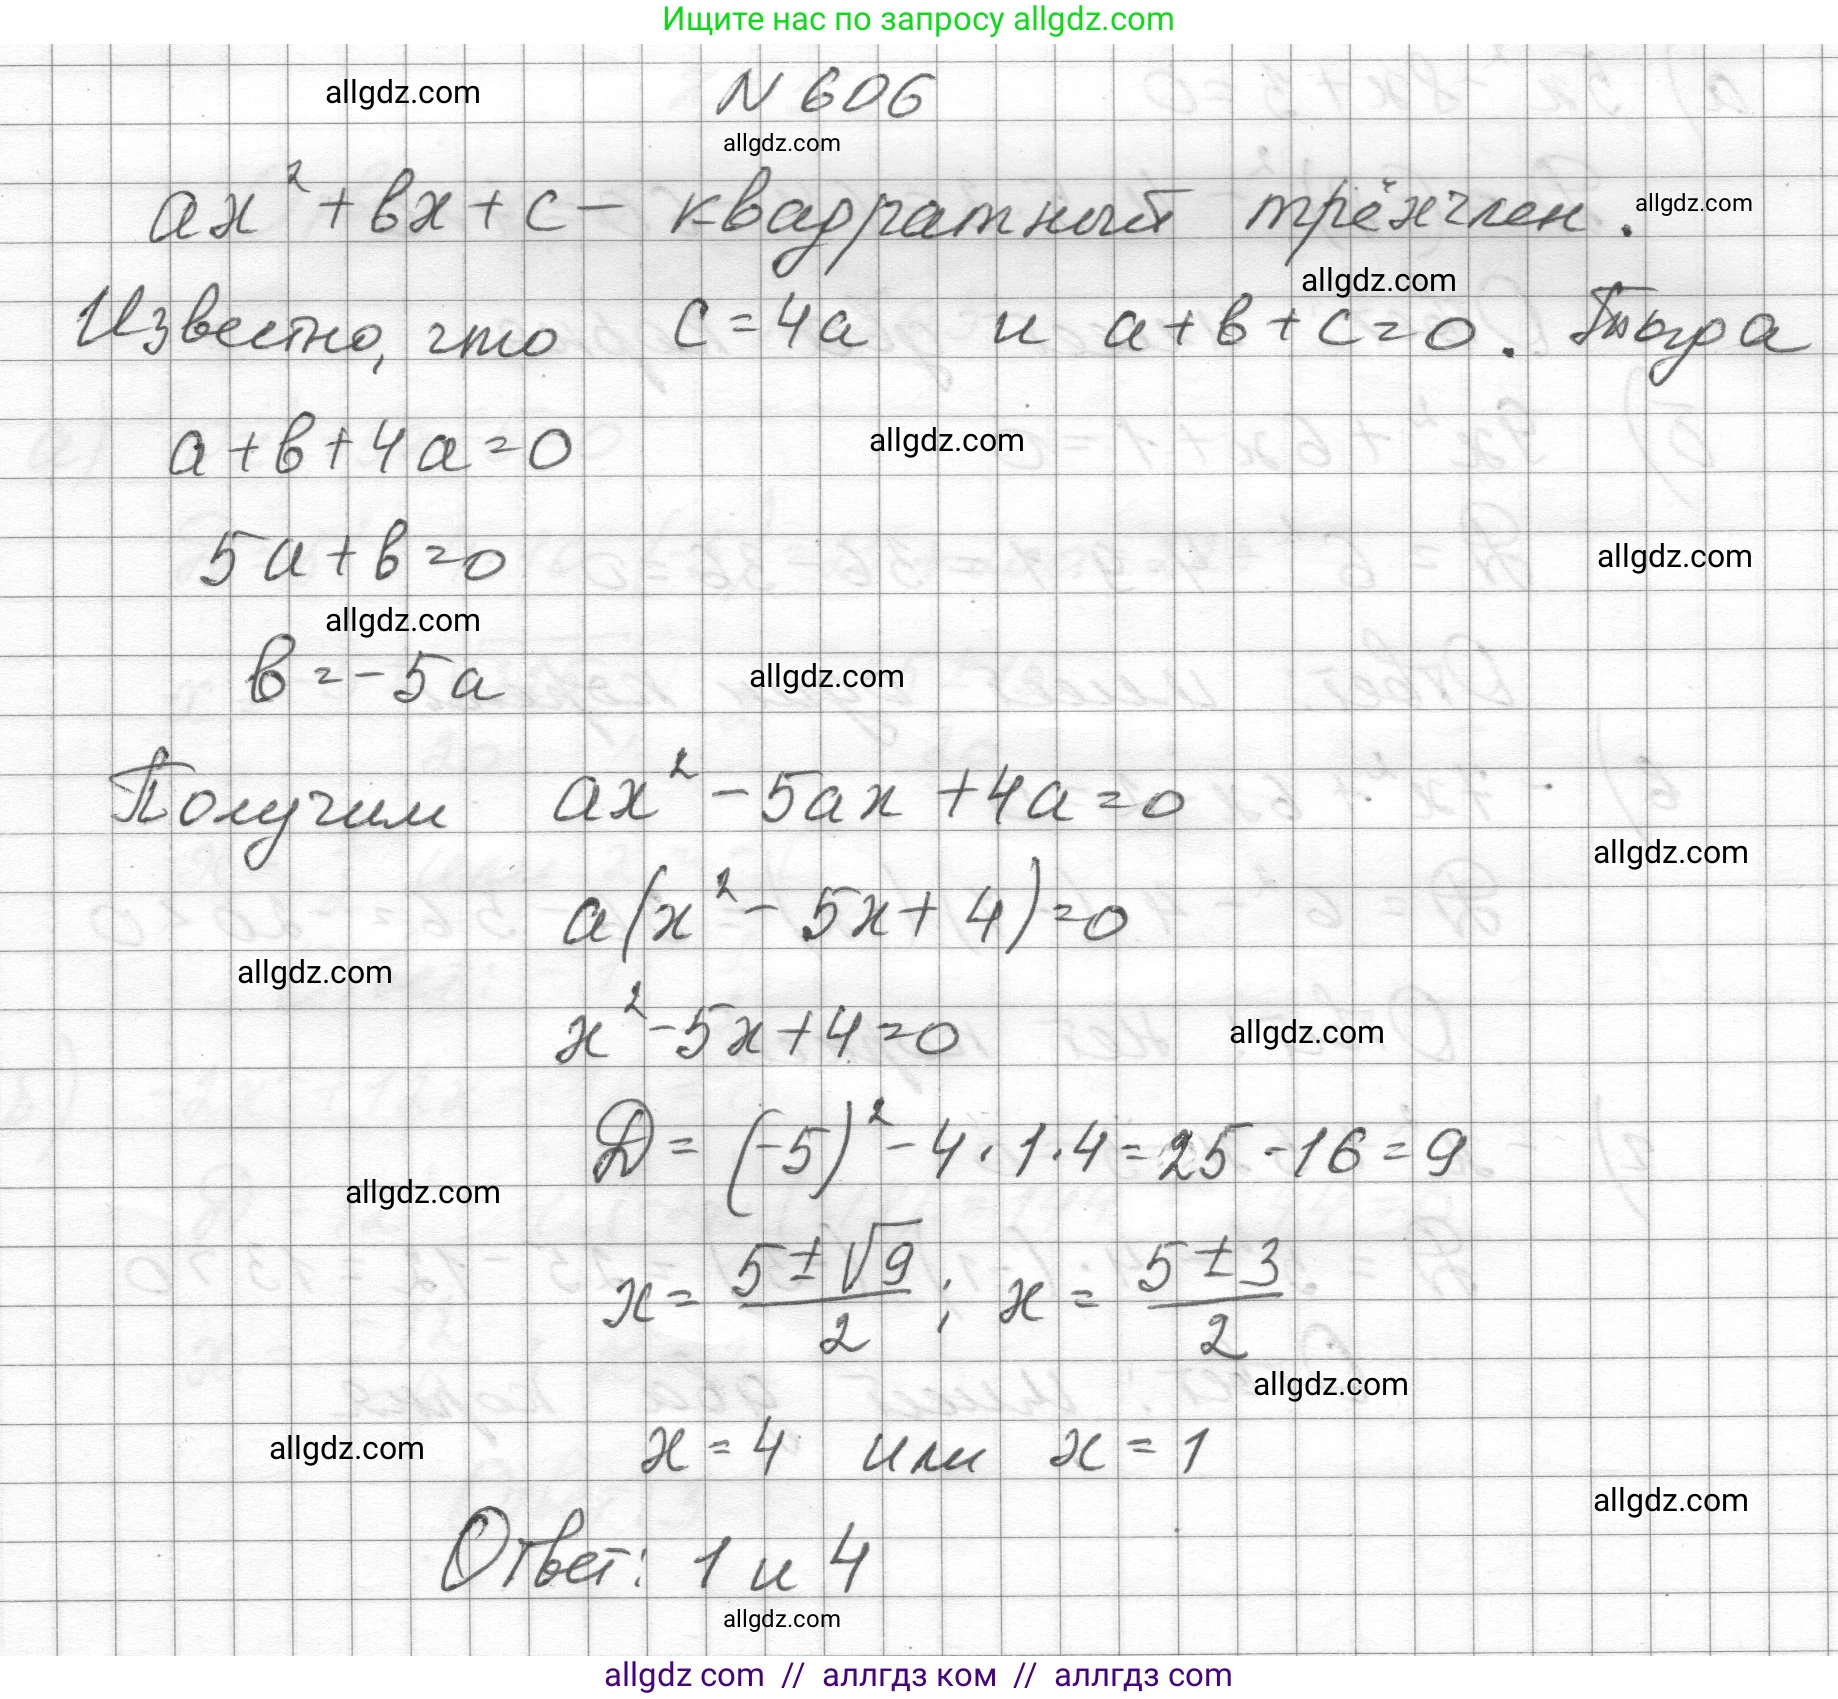 Ищите нас по запросу allgdz.com
allgdz.com
N 606
allgdz.com
ax² + bx + c – квадратный трёхчлен.
allgdz.com
allgdz.com
Известно, что c = 4a и a + b + c = 0. Тогда
a + b + 4a = 0
allgdz.com
5a + b = 0
allgdz.com
allgdz.com
b = -5a
allgdz.com
Получим ax² - 5ax + 4a = 0
allgdz.com
a(x² - 5x + 4) = 0
allgdz.com
x² - 5x + 4 = 0
allgdz.com
D = (-5)² - 4 · 1 · 4 = 25 - 16 = 9
allgdz.com
x = (5 ± √9)/2 ; x = (5 ± 3)/2
allgdz.com
x = 4 или x = 1
allgdz.com
allgdz.com
Ответ: 1 и 4
allgdz.com
allgdz com // аллгдз ком // аллгдз com